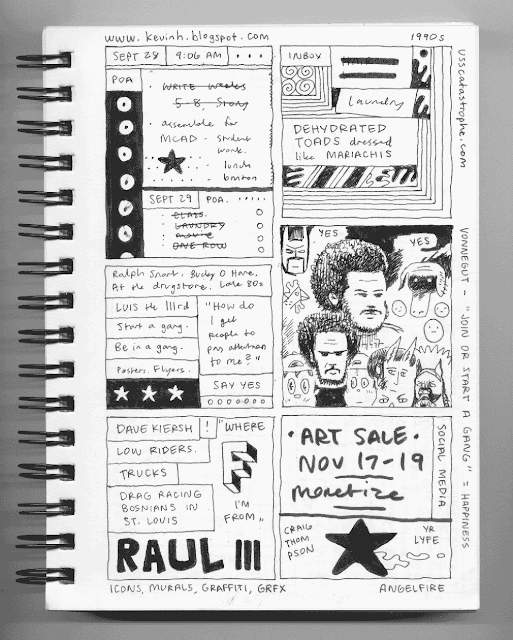 www.kevinh.blogspot.com
1990s
SEPT 28
9:06 AM
POA
WRITE Weeks
5-8 Story
assemble for
MCAD - student
work.
lunch
SEPT 29
POA
CLASS
LAUNDRY
movie
ONE ROW
INBOX
Laundry
DEHYDRATED
TOADS dressed
like MARIACHIS
usscatastrophe.com
YES
YES
Ralph Snart. Bucky O Hare.
At the drugstore. Late 80s
LUIS the IIIrd
Start a gang.
Be in a gang.
Posters. Flyers.
"How do
I get
people to
pay attention
to me?"
SAY YES
VONNEGUT - "JOIN OR START A GANG" = HAPPINESS
DAVE KIERSH !
LOW RIDERS.
TRUCKS
DRAG RACING
BOSNIANS IN
ST. LOUIS
"WHERE
I'M
FROM"
RAUL III
• ART SALE •
NOV 17-19
monetize
SOCIAL MEDIA
CRAIG
THOM
PSON
YR
LYFE
ICONS, MURALS, GRAFFITI, GRFX
ANGELFIRE